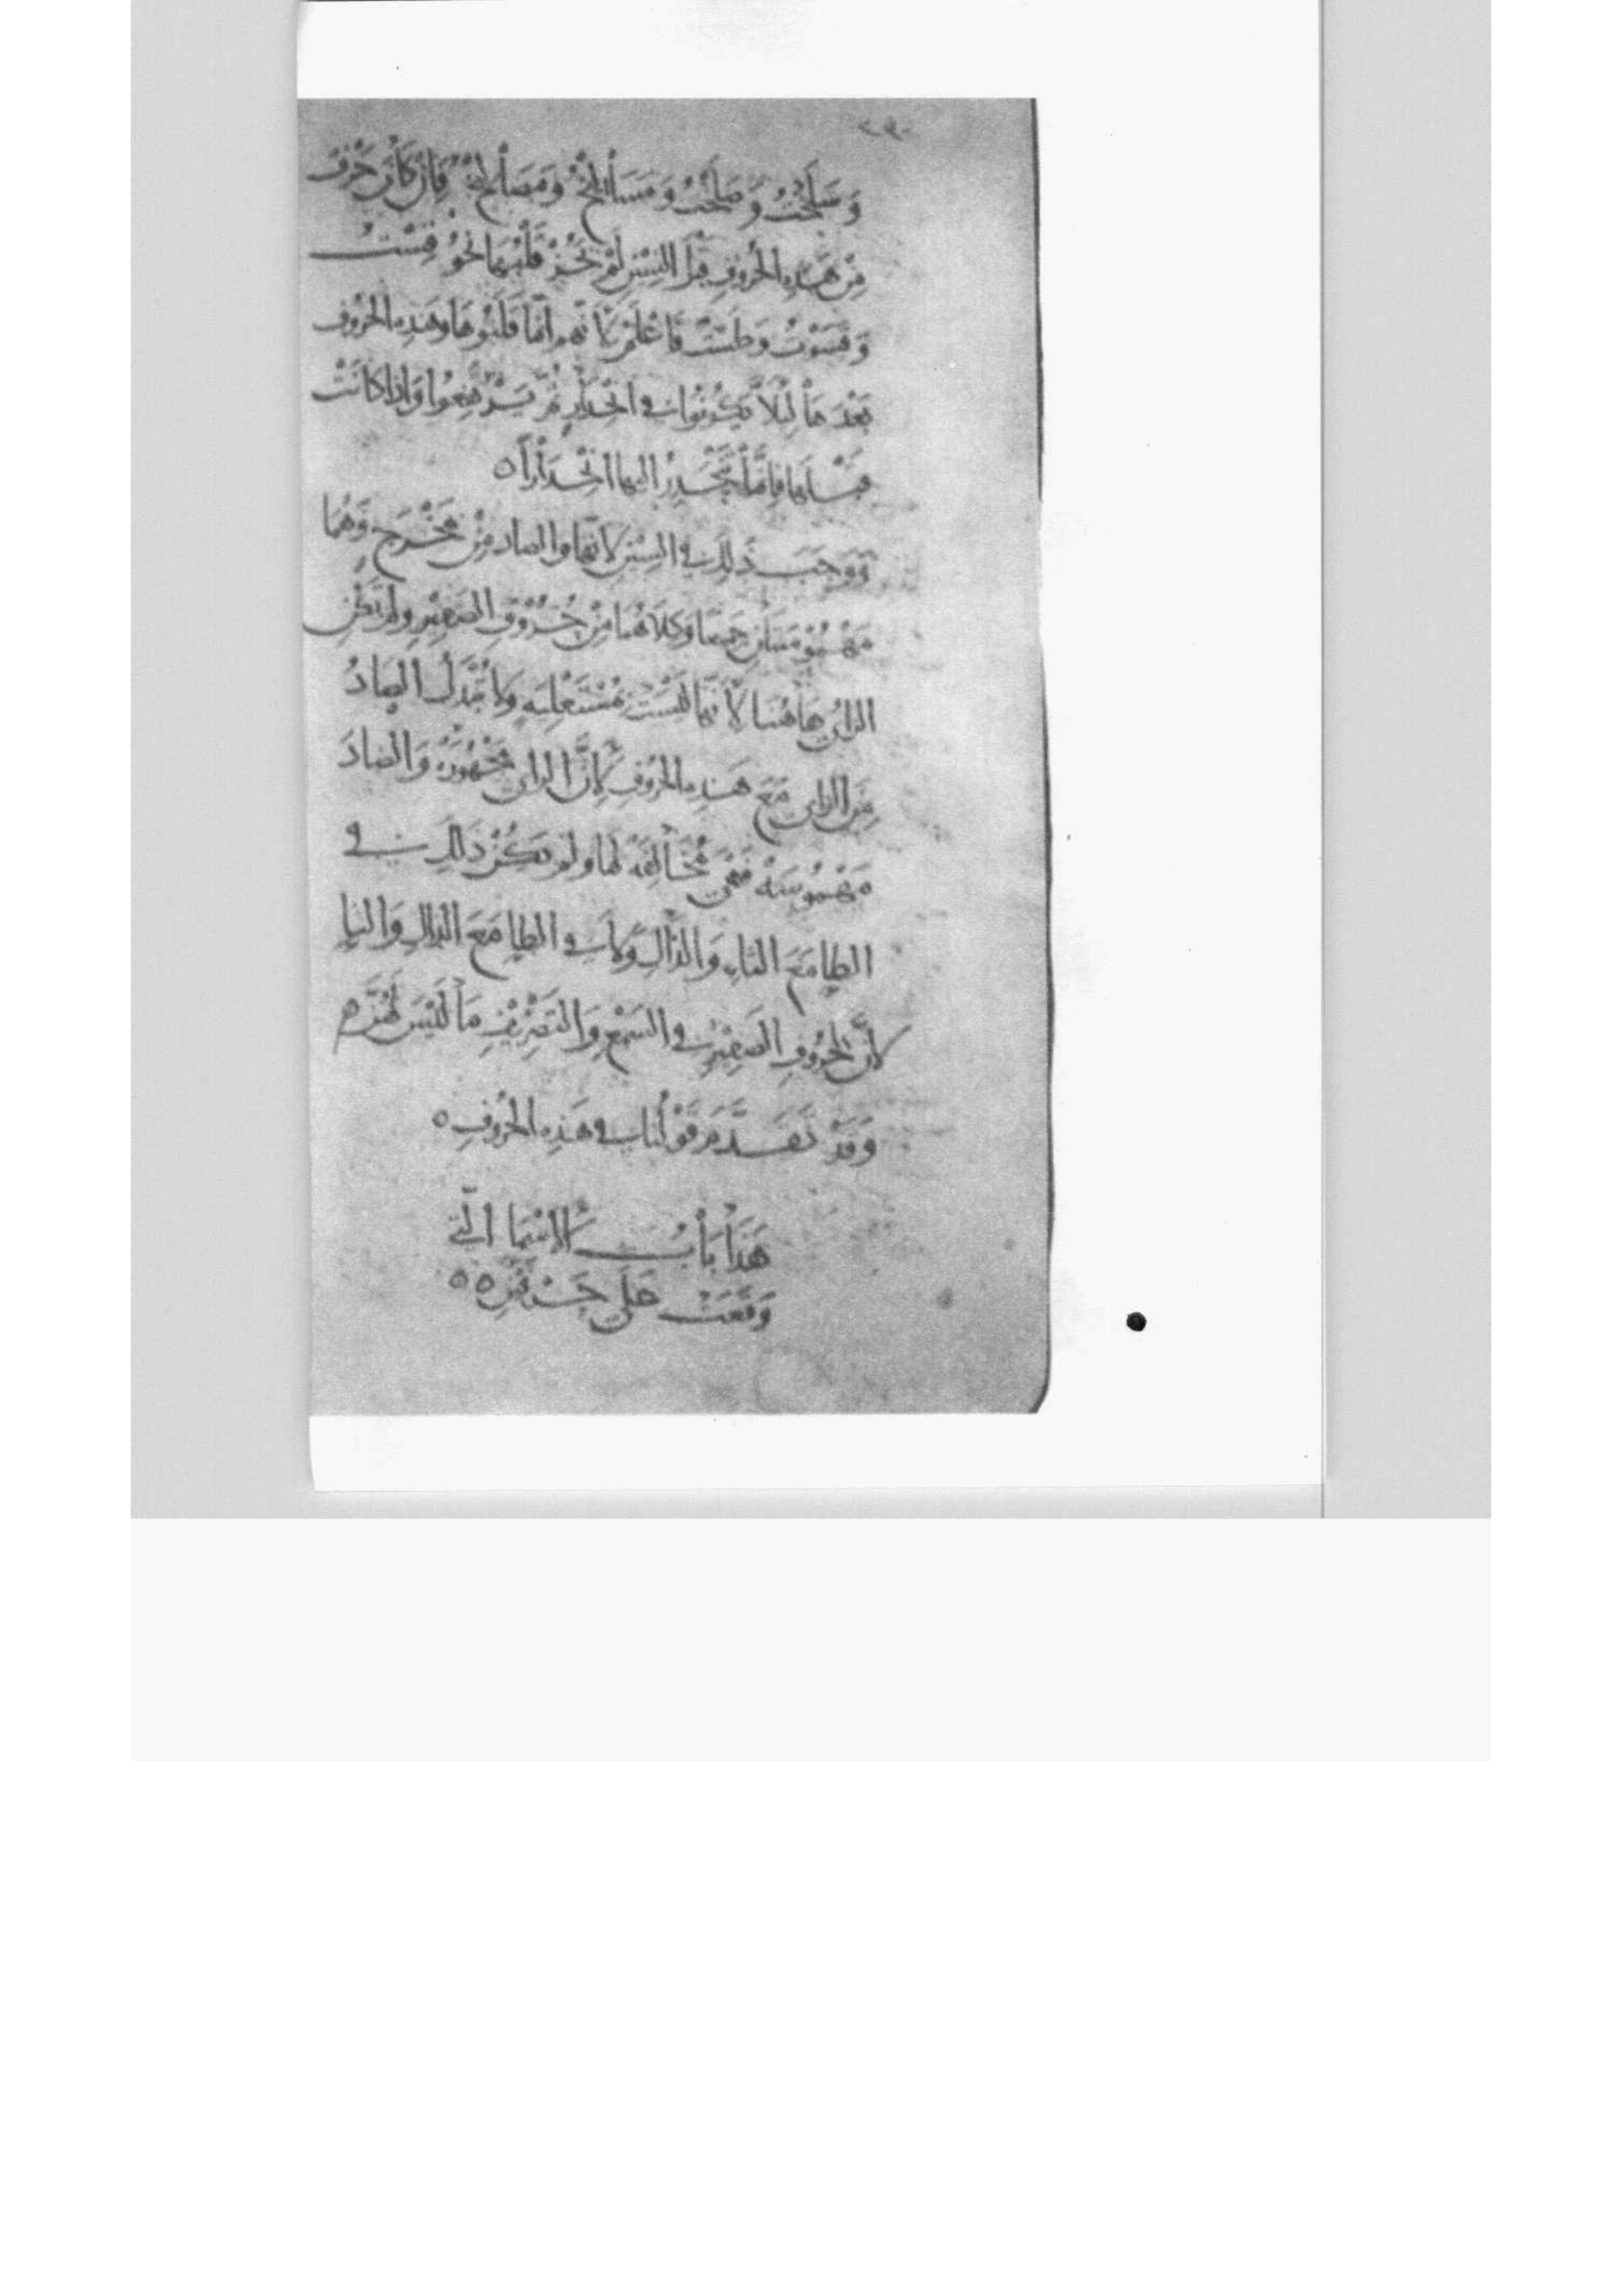 ٢٩٠
وَسَلَخْتُ وَصَلَخْتُ وَمَسَالِخُ وَمَصَالِخُ فَإِنْ كَانَ حَرْفٌ
مِنْ هَذِهِ الحُرُوفِ قَبْلَ السِّينِ لَمْ يَجُزْ قَلْبُهَا نَحْوُ قِسْتُ
وَقَسَوْتُ وَطَسْتٌ فَاعْلَمْ لِأَنَّهم إِنَّمَا قَلَبُوهَا وَهَذِهِ الحُرُوف
بَعْدَهَا لِئَلَّا يَكُونُوا فِي انْحِدَارٍ ثُمَّ يَرْتَفِعُوا وَإِذَا كَانَتْ
قَبْلَهَا فَإِنَّمَا يَنْحَدِرُ إليها انْحِدَارًا ٥
وَوَجَبَ ذَلِكَ فِي السِّينِ لأَنَّها والصاد مِنْ مَخْرَجٍ وَهُمَا
مَهْمُوسَتَانِ جَمِيعًا وَكِلَاهُمَا مِنْ حُرُوفِ الصَّفِيرِ وَلَمْ تَكُنِ
الزَّايُ هَاهُنَا لأَنَّهَا لَيْسَتْ بِمُسْتَعْلِيَةٍ وَلَا تُبْدَلُ الصَّادُ
مِنَ الزاي مَعَ هَذِهِ الحُرُوفِ لِأَنَّ الزاي مَجْهُورَةٌ وَالصَادَ
مَهْمُوسَةٌ فَهِيَ مُخَالِفَةٌ لَهَا وَلَمْ يَكُنْ ذَلِكَ فِي
الطَّاءِ مَعَ التَاءِ وَالدَّالِ وَلَا فِي الظاء مَعَ الذالِ وَالثاءِ
لأَنَّ لِحُرُوفِ الصَفِيرِ فِي السَّمْعِ وَالتَصْرِيْفِ مَا لَيْسَ لَهُنَّ ٥
وَقَدْ تَقَدَّمَ قَوْلُنَا فِي هَذِهِ الحُرُوفِ ٥
هَذَا بَابُ الأَسْمَا الَّتِي
وَقَعَتْ عَلَى حَرْفَيْنِ ٥٥